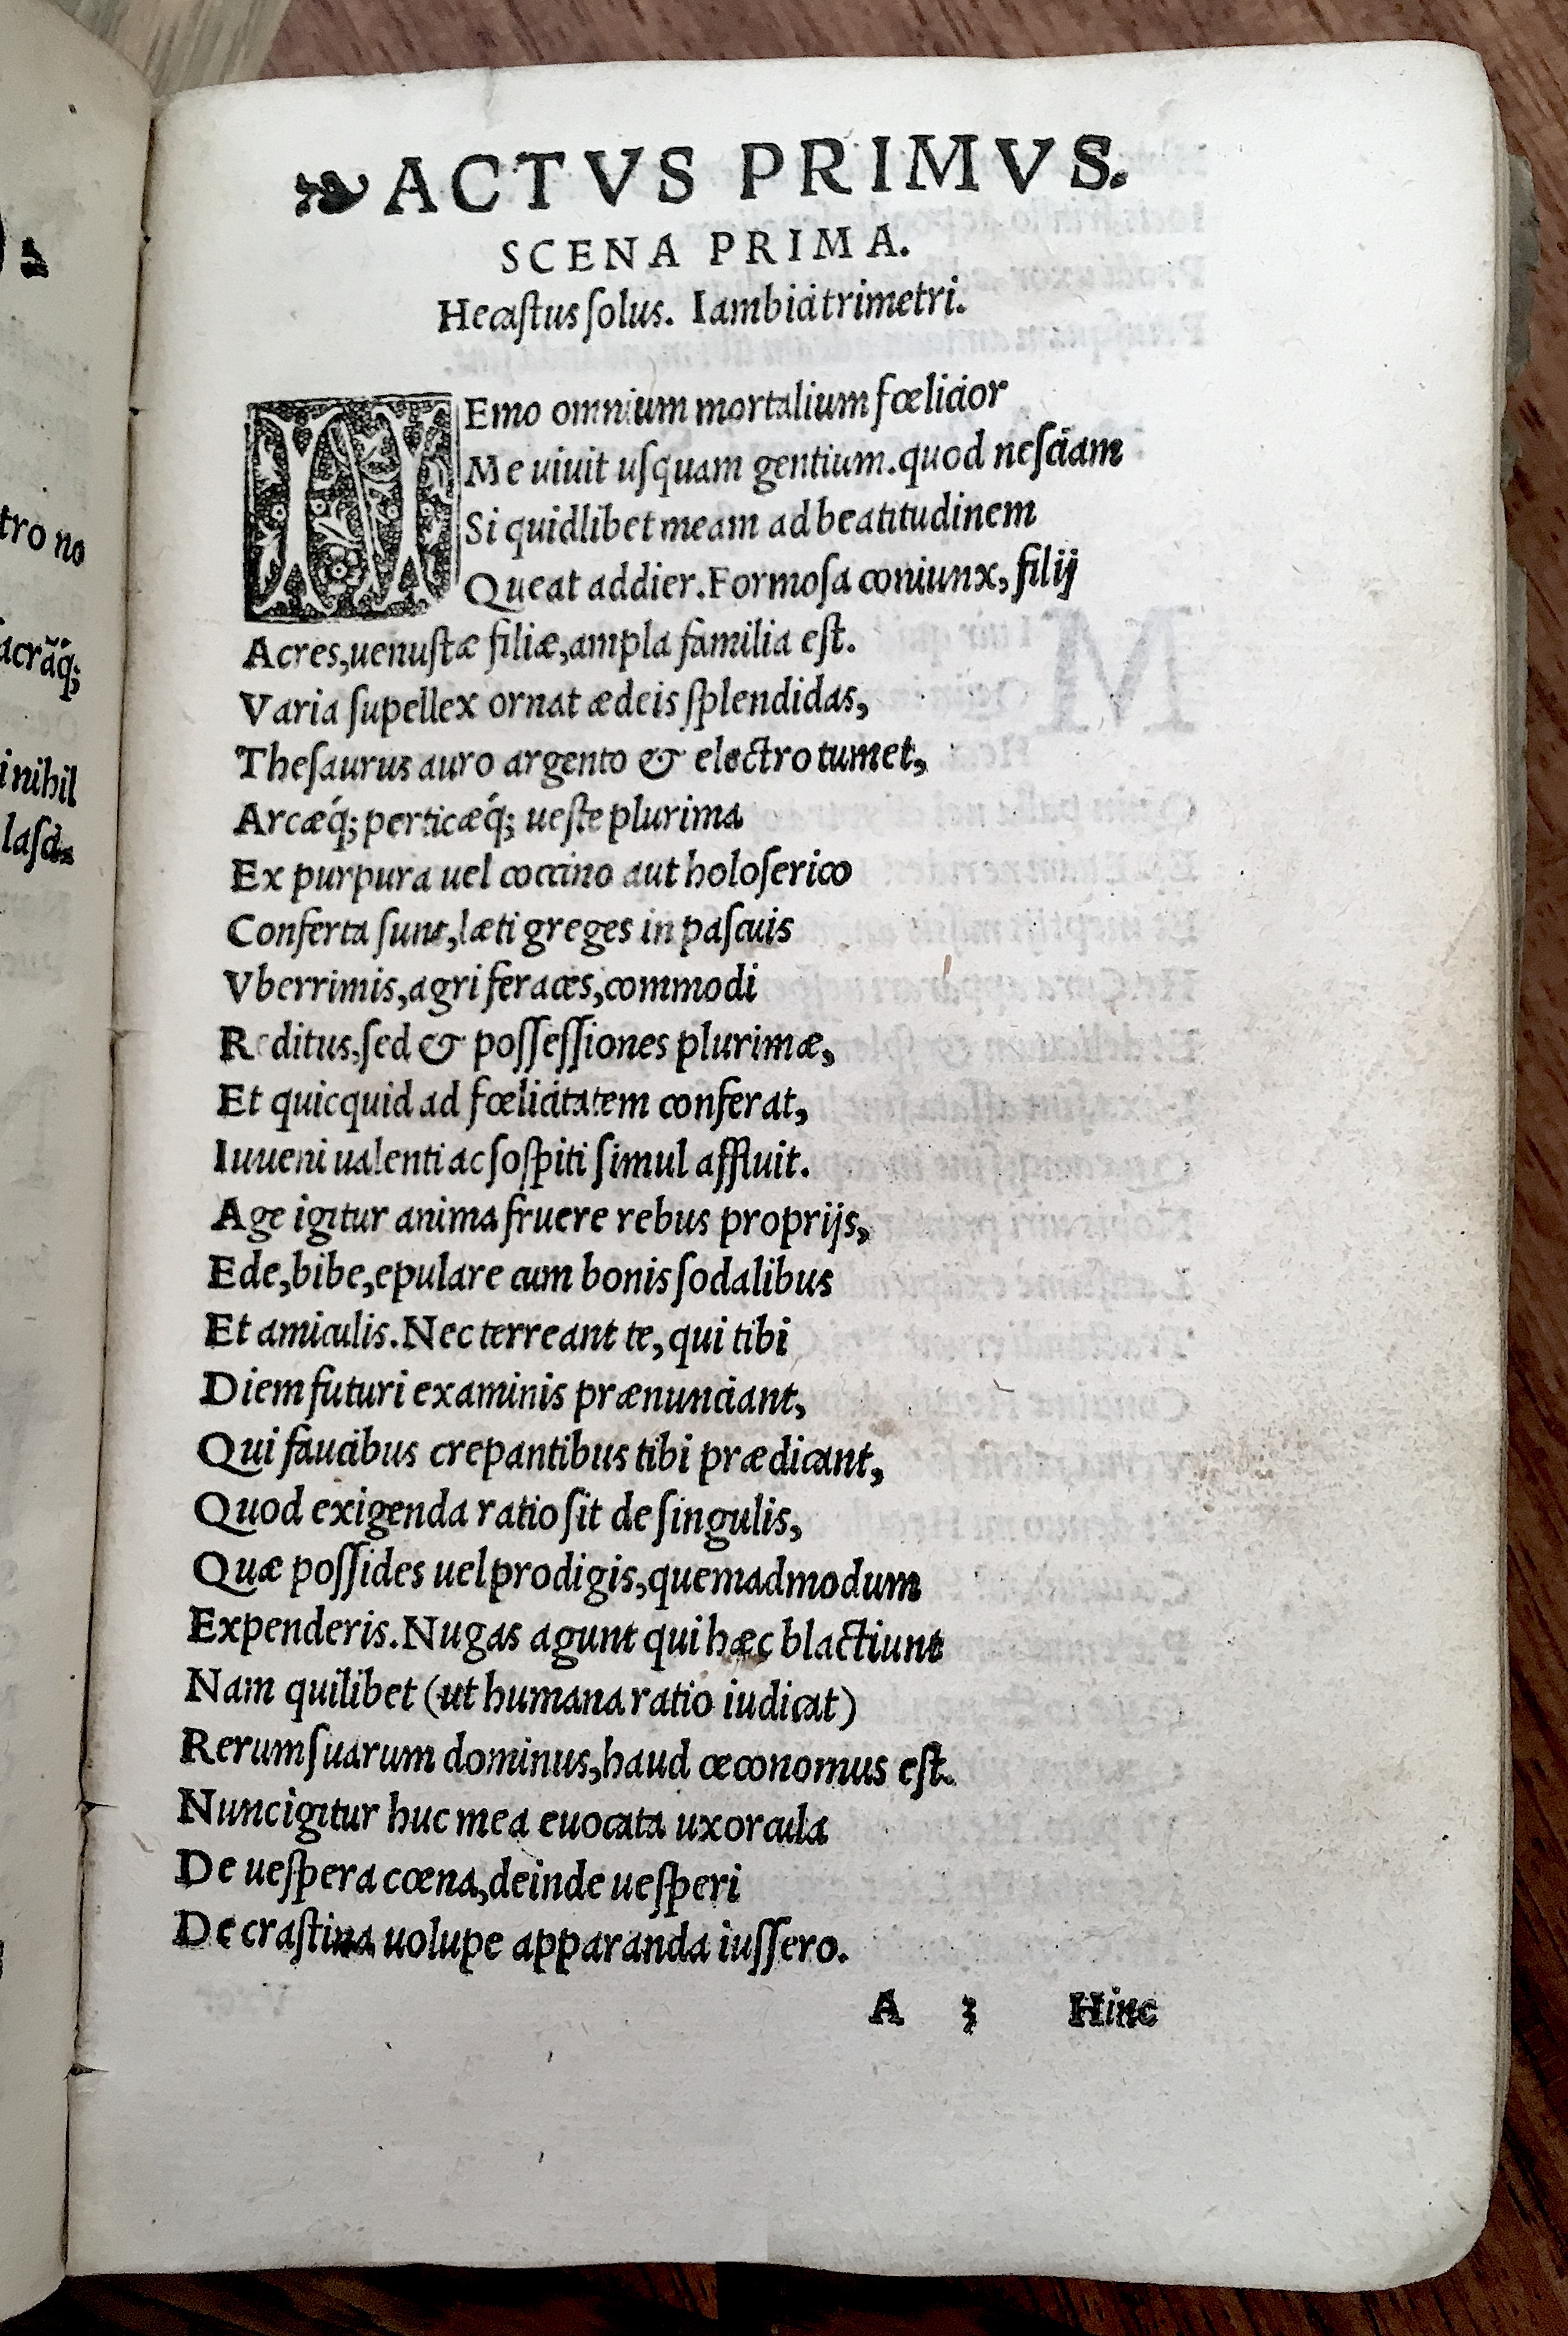 tro no
acrãq́;
i nihil
lasci-
❧ ACTVS PRIMVS.
SCENA PRIMA.
Hecaſtus ſolus. Iambici trimetri.
NEmo omnium mortalium fœlicior
Me uiuit uſquam gentium. quod neſciam
Si quidlibet meam ad beatitudinem
Queat addier. Formoſa coniunx, filij
Acres, uenuſtæ filiæ, ampla familia eſt.
Varia ſupellex ornat ædeis ſplendidas,
Theſaurus auro argento & electro tumet,
Arcæq́; perticæq́; ueſte plurima
Ex purpura uel coccino aut holoſerico
Conferta ſunt, læti greges in paſcuis
Vberrimis, agri feraces, commodi
Reditus, ſed & poſſeſſiones plurimæ,
Et quicquid ad fœlicitatem conferat,
Iuueni ualenti ac ſoſpiti ſimul affluit.
Age igitur anima fruere rebus proprijs,
Ede, bibe, epulare cum bonis ſodalibus
Et amiculis. Nec terreant te, qui tibi
Diem futuri examinis prænunciant,
Qui faucibus crepantibus tibi prædicant,
Quod exigenda ratio ſit de ſingulis,
Quæ poſſides uel prodigis, quemadmodum
Expenderis. Nugas agunt qui hæc blactiunt
Nam quilibet (ut humana ratio iudicat)
Rerum ſuarum dominus, haud œconomus eſt.
Nunc igitur huc mea euocata uxorcula
De ueſpera cœna, deinde ueſperi
De craſtina uolupe apparanda iuſſero.
A 3 Hinc